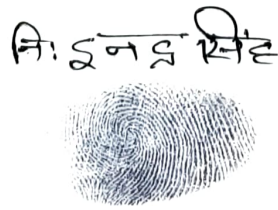 नि: इनद्र सिंह